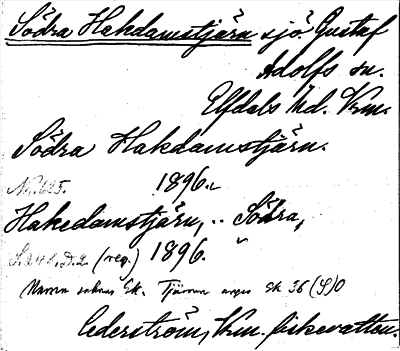 Södra Hakdamstjärn sjö Gustaf
Adolfs sn.
Elfdals hd. Vrm.
Södra Hakdamstjärn.
Nr. 625. 1896.
Hakedamstjärn, .. Södra,
S. 241, D. 2 (reg.) 1896.
Namn saknas Ek. Tjärnen anges Ek 36 (S)O
Cederström, Vrm. fiskevatten.